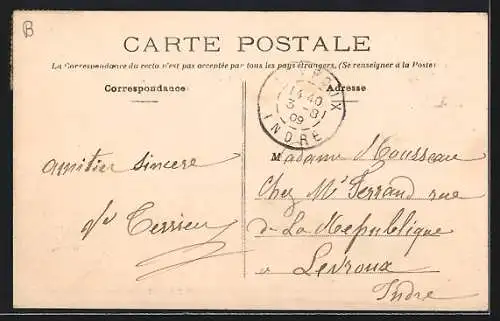 B
CARTE POSTALE
La Correspondance du recto n'est pas acceptée par tous les pays étrangers. (Se renseigner à la Poste)
Correspondance
Adresse
14-40
3-8
09
INDRE
amitier sincere
Madame Mousseau
Chez Mr Ferrand rue
de La Republique
a Levroux
Indre